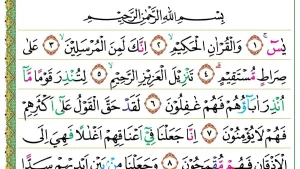 بِسْمِ اللهِ الرَّحْمٰنِ الرَّحِيْمِ
يٰسٓ ۝١ وَالْقُرْاٰنِ الْحَكِيْمِ ۝٢ اِنَّكَ لَمِنَ الْمُرْسَلِيْنَ ۝٣ عَلٰى
صِرَاطٍ مُّسْتَقِيْمٍ ۝٤ تَنْزِيْلَ الْعَزِيْزِ الرَّحِيْمِ ۝٥ لِتُنْذِرَ قَوْمًا مَّاۤ
اُنْذِرَ اٰبَآؤُهُمْ فَهُمْ غٰفِلُوْنَ ۝٦ لَقَدْ حَقَّ الْقَوْلُ عَلٰٓى اَكْثَرِهِمْ
فَهُمْ لَا يُؤْمِنُوْنَ ۝٧ اِنَّا جَعَلْنَا فِيْٓ اَعْنَاقِهِمْ اَغْلٰلًا فَهِيَ اِلَى
الْاَذْقَانِ فَهُمْ مُّقْمَحُوْنَ ۝٨ وَجَعَلْنَا مِنْۢ بَيْنِ اَيْدِيْهِمْ سَدًّا